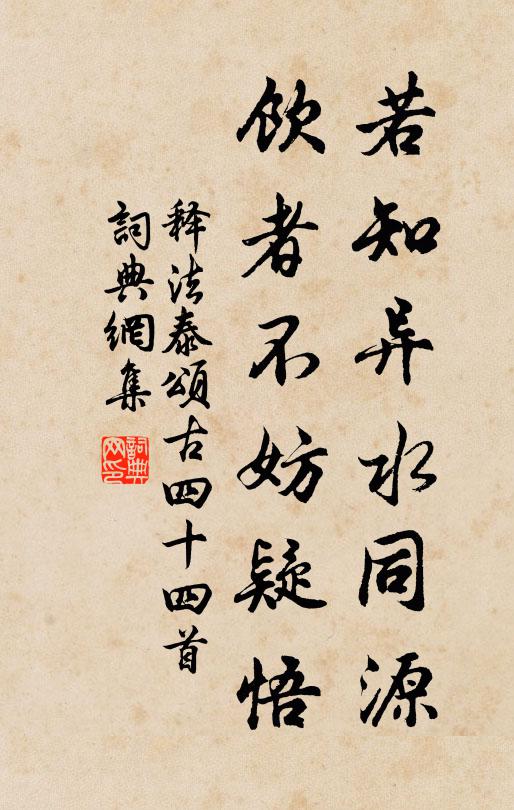 若知异水同源
飲者不妨疑悟
释法泰頌古四十四首
詞典網集
詞典
网印